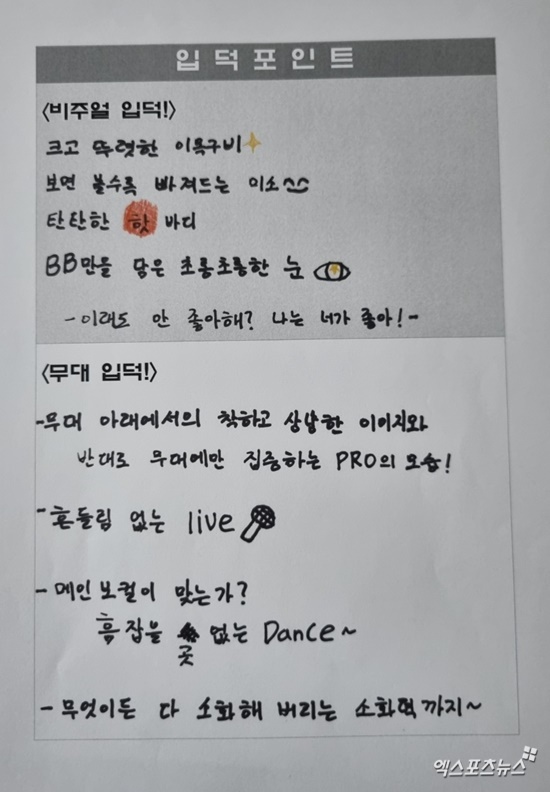 입덕포인트
<비주얼 입덕!>
크고 뚜렷한 이목구비
보면 볼수록 빠져드는 미소^^
탄탄한 핫 바디
BB만을 담은 초롱초롱한 눈
-이래도 안 좋아해? 나는 너가 좋아!-
<무대 입덕!>
-무대 아래에서의 착하고 상냥한 이미지와
반대로 무대에만 집중하는 PRO의 모습!
-흔들림 없는 live
-메인보컬이 맞는가?
흠 잡을 곳 없는 Dance~
-무엇이든 다 소화해 버리는 소화력까지~
엑스포츠뉴스